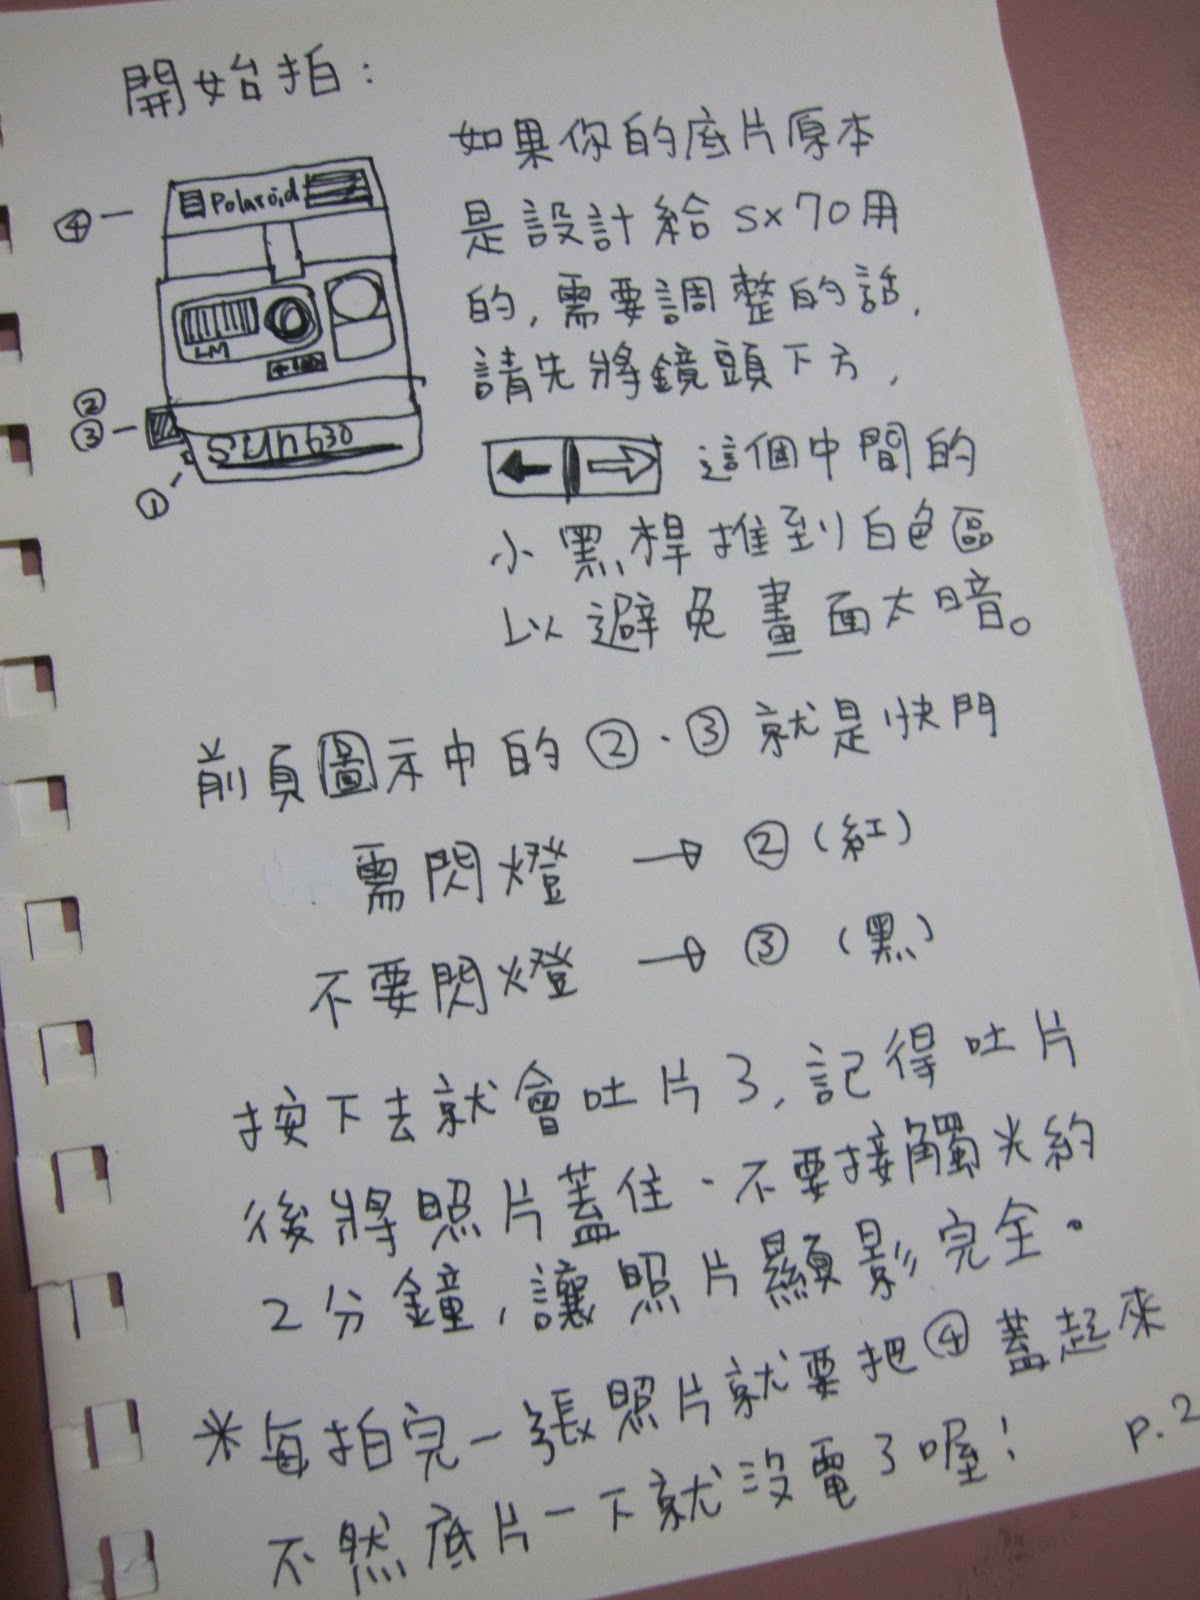 開始拍:
④
Polaroid
LM
②
③
sun630
①
如果你的底片原本
是設計給 SX70用
的,需要調整的話,
請先將鏡頭下方,
這個中間的
小黑桿推到白色區
以避免畫面太暗。
前頁圖示中的②、③就是快門
需閃燈 → ②(紅)
不要閃燈 → ③(黑)
按下去就會吐片了,記得吐片
後將照片蓋住、不要接觸光約
2分鐘,讓照片顯影完全。
*每拍完一張照片就要把④蓋起來
不然底片一下就沒電了喔!
p.2